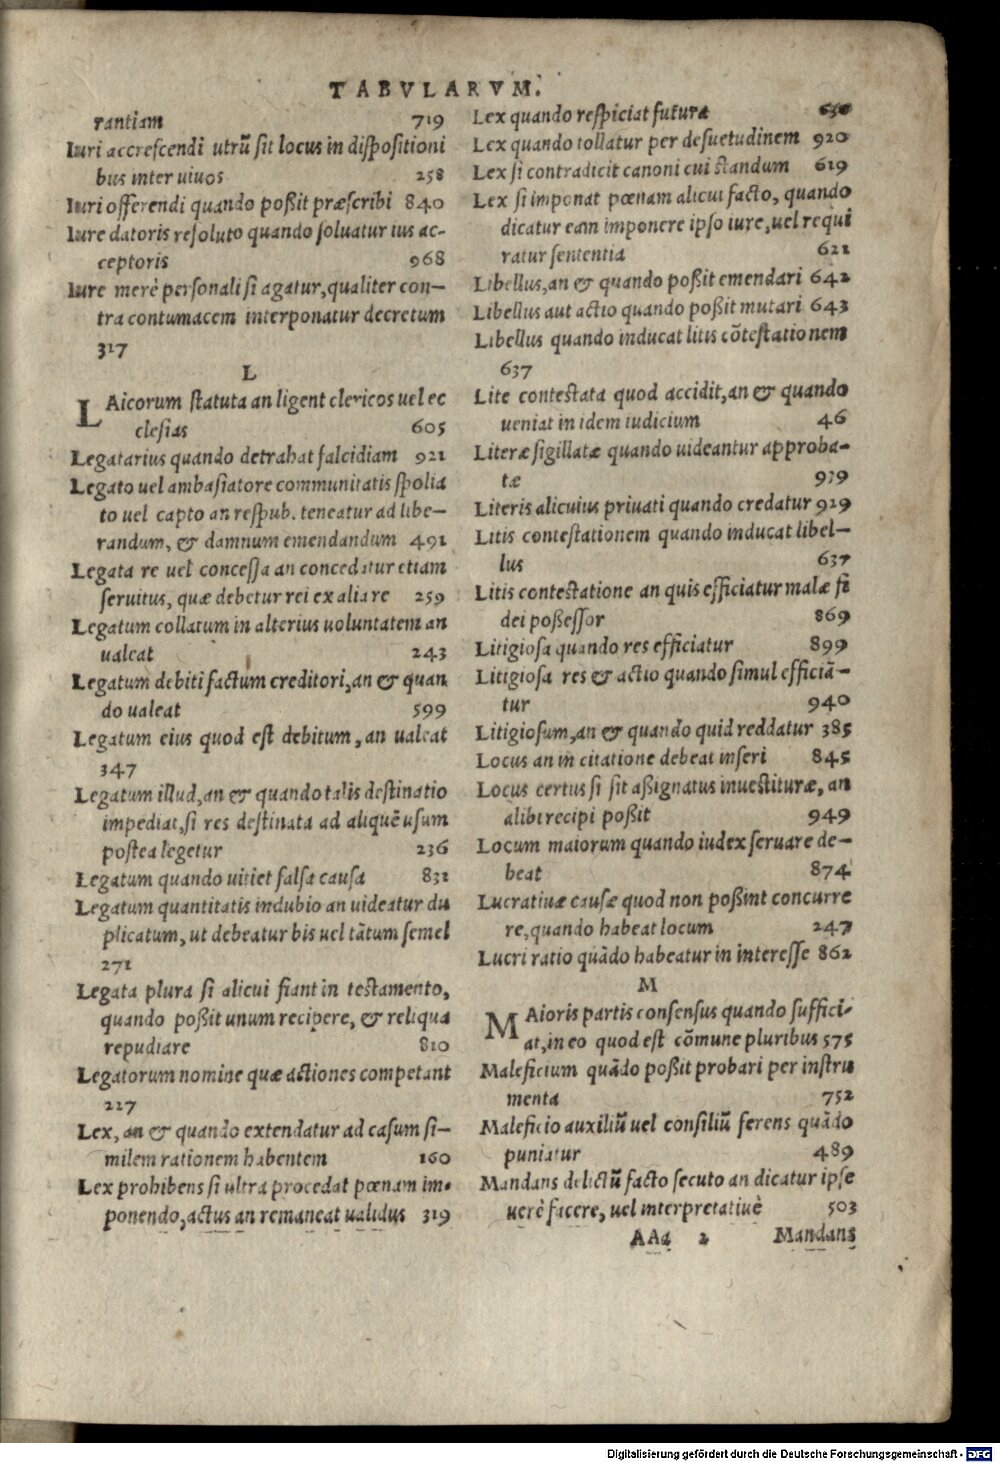 TABVLARVM.
rantiam 719
Iuri accrescendi utrũ sit locus in dispositioni
bus inter uiuos 258
Iuri offerendi quando poßit præscribi 840
Iure datoris resoluto quando soluatur ius ac-
ceptoris 968
Iure merè personali si agatur, qualiter con-
tra contumacem interponatur decretum
317
L
LAicorum statuta an ligent clericos uel ec
clesias 605
Legatarius quando detrahat falcidiam 921
Legato uel ambasiatore communitatis spolia
to uel capto an respub. teneatur ad libe-
randum, & damnum emendandum 491
Legata re uel concessa an concedatur etiam
seruitus, quæ debetur rei ex alia re 259
Legatum collatum in alterius uoluntatem an
ualeat 243
Legatum debiti factum creditori, an & quan
do ualeat 599
Legatum eius quod est debitum, an ualeat
347
Legatum illud, an & quando talis destinatio
impediat, si res destinata ad aliquẽ usum
postea legetur 236
Legatum quando uitiet falsa causa 831
Legatum quantitatis indubio an uideatur du
plicatum, ut debeatur bis uel tãtum semel
271
Legata plura si alicui fiant in testamento,
quando poßit unum recipere, & reliqua
repudiare 810
Legatorum nomine quæ actiones competant
227
Lex, an & quando extendatur ad casum si-
milem rationem habentem 160
Lex prohibens si ultra procedat pœnam im-
ponendo, actus an remaneat ualidus 319
Lex quando respiciat futura
Lex quando tollatur per desuetudinem 920
Lex si contradicit canoni cui standum 619
Lex si imponat pœnam alicui facto, quando
dicatur eam imponere ipso iure, uel requi
ratur sententia 621
Libellus, an & quando poßit emendari 642
Libellus aut actio quando poßit mutari 643
Libellus quando inducat litis cõtestationem
637
Lite contestata quod accidit, an & quando
ueniat in idem iudicium 46
Literæ sigillatæ quando uideantur approba-
tæ 939
Literis alicuius priuati quando credatur 929
Litis contestationem quando inducat libel-
lus 637
Litis contestatione an quis efficiatur malæ fi
dei poßessor 869
Litigiosa quando res efficiatur 899
Litigiosa res & actio quando simul efficiã-
tur 940
Litigiosum, an & quando quid reddatur 385
Locus an in citatione debeat inseri 845
Locus certus si sit aßignatus inuestituræ, an
alibi recipi poßit 949
Locum maiorum quando iudex seruare de-
beat 874
Lucratiuæ causæ quod non poßint concurre
re, quando habeat locum 247
Lucri ratio quãdo habeatur in interesse 862
M
MAioris partis consensus quando suffici-
at, in eo quod est cõmune pluribus 575
Maleficium quãdo poßit probari per instru
menta 752
Maleficio auxiliũ uel consiliũ ferens quãdo
puniatur 489
Mandans delictũ facto secuto an dicatur ipse
uerè facere, uel interpretatiuè 503
AAa 2 Mandans
Digitalisierung gefördert durch die Deutsche Forschungsgemeinschaft - DFG